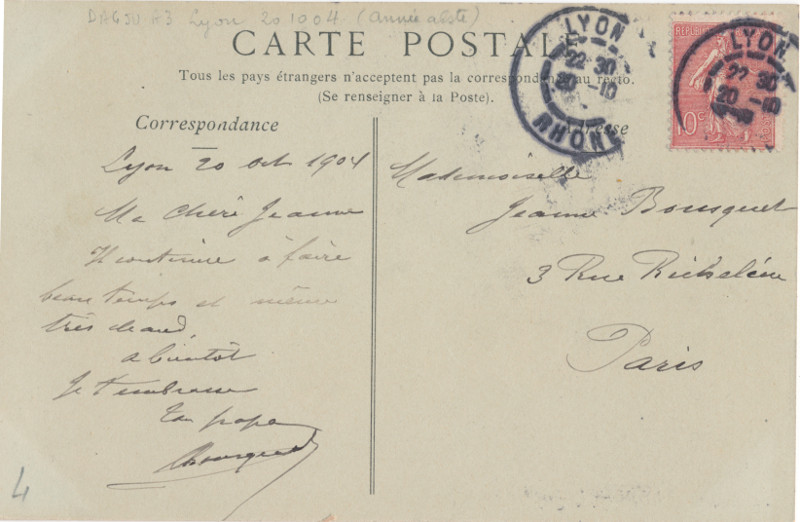 DAGJU A3 Lyon 201004 (Année alste)
CARTE POSTALE
Tous les pays étrangers n'acceptent pas la correspondance au recto.
(Se renseigner à la Poste).
Correspondance
Adresse
Lyon 20 oct 1904
Ma chère Jeanne
Il continue à faire
beau temps et même
très chaud
a bientôt
Je t'embrasse
Ton papa
Bousquet
Mademoiselle
Jeanne Bousquet
3 Rue Richelieu
Paris
LYON
22 30
20 -10
RHONE
REPUBLIQUE
10c
LYON
22 30
20 -10
4